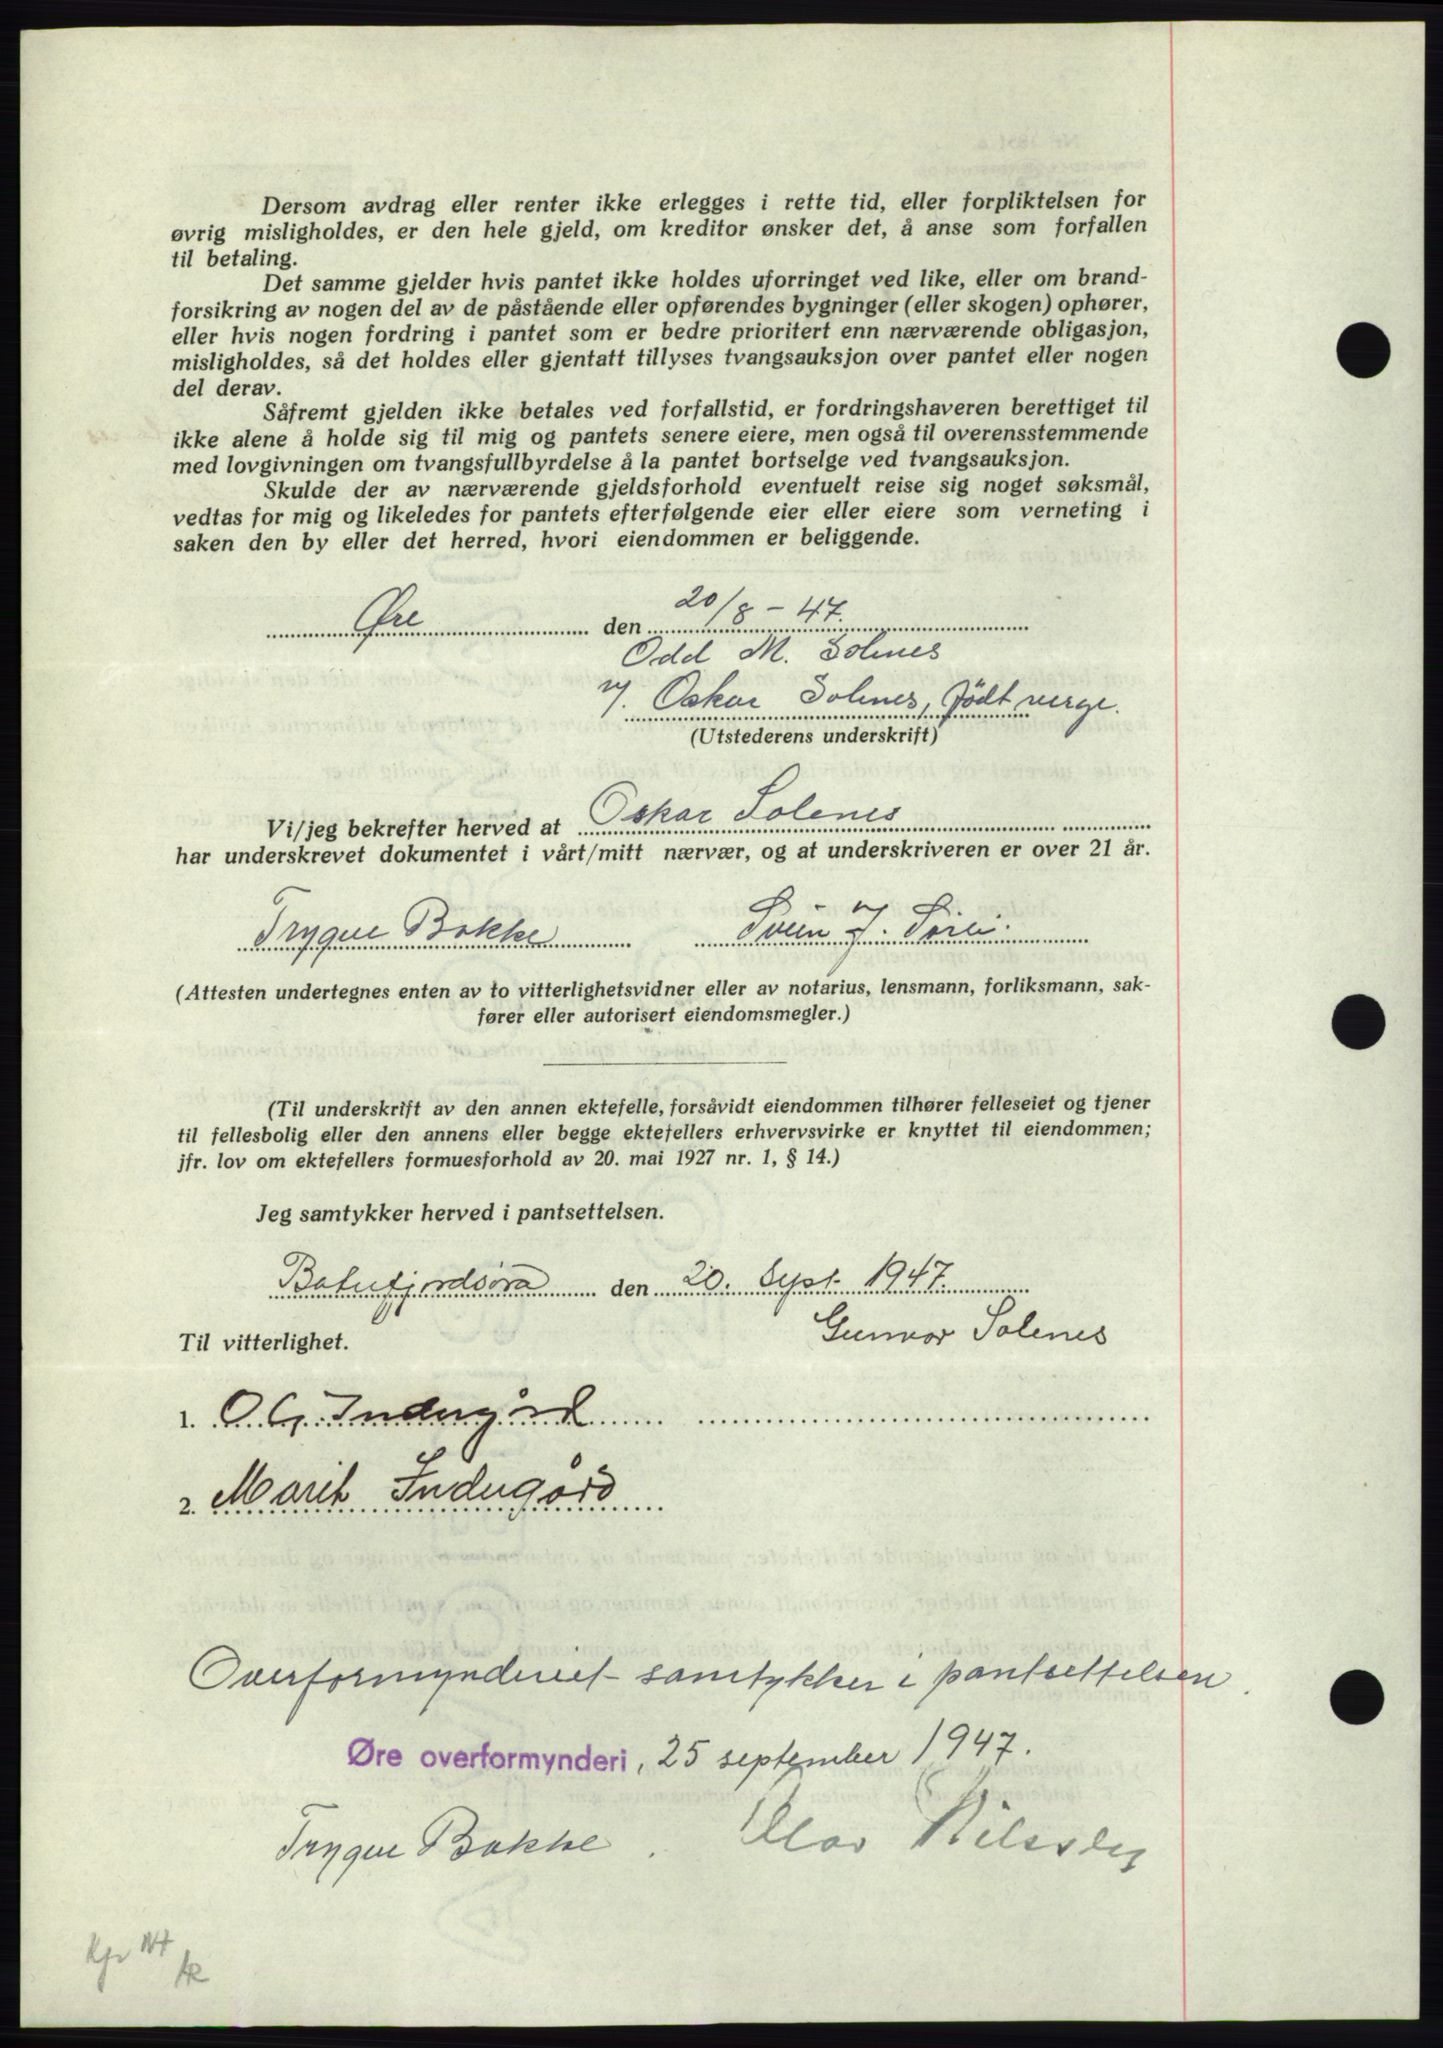 Dersom avdrag eller renter ikke erlegges i rette tid, eller forpliktelsen for
øvrig misligholdes, er den hele gjeld, om kreditor ønsker det, å anse som forfallen
til betaling.
Det samme gjelder hvis pantet ikke holdes uforringet ved like, eller om brand-
forsikring av nogen del av de påstående eller opførendes bygninger (eller skogen) ophører,
eller hvis nogen fordring i pantet som er bedre prioritert enn nærværende obligasjon,
misligholdes, så det holdes eller gjentatt tillyses tvangsauksjon over pantet eller nogen
del derav.
Såfremt gjelden ikke betales ved forfallstid, er fordringshaveren berettiget til
ikke alene å holde sig til mig og pantets senere eiere, men også til overensstemmende
med lovgivningen om tvangsfullbyrdelse å la pantet bortselge ved tvangsauksjon.
Skulde der av nærværende gjeldsforhold eventuelt reise sig noget søksmål,
vedtas for mig og likeledes for pantets efterfølgende eier eller eiere som verneting i
saken den by eller det herred, hvori eiendommen er beliggende.
Øre den 20/8-47.
Odd M. Solenes
v/. Oskar Solenes, født verge.
(Utstederens underskrift)
Vi/jeg bekrefter herved at Oskar Solenes
har underskrevet dokumentet i vårt/mitt nærvær, og at underskriveren er over 21 år.
Trygve Bakke Svein J.
(Attesten undertegnes enten av to vitterlighetsvidner eller av notarius, lensmann, forliksmann, sak-
fører eller autorisert eiendomsmegler.)
(Til underskrift av den annen ektefelle, forsåvidt eiendommen tilhører felleseiet og tjener
til fellesbolig eller den annens eller begge ektefellers erhvervsvirke er knyttet til eiendommen;
jfr. lov om ektefellers formuesforhold av 20. mai 1927 nr. 1, § 14.)
Jeg samtykker herved i pantsettelsen.
Batnfjordsøra den 20. Sept. 1947.
Gunvor Solenes
Til vitterlighet.
1. O. G. Indergård
2. Marit Indergård
Overformynderiet samtykker i pantsettelsen.
Øre overformynderi, 25 september 1947.
Trygve Bakke. Olav